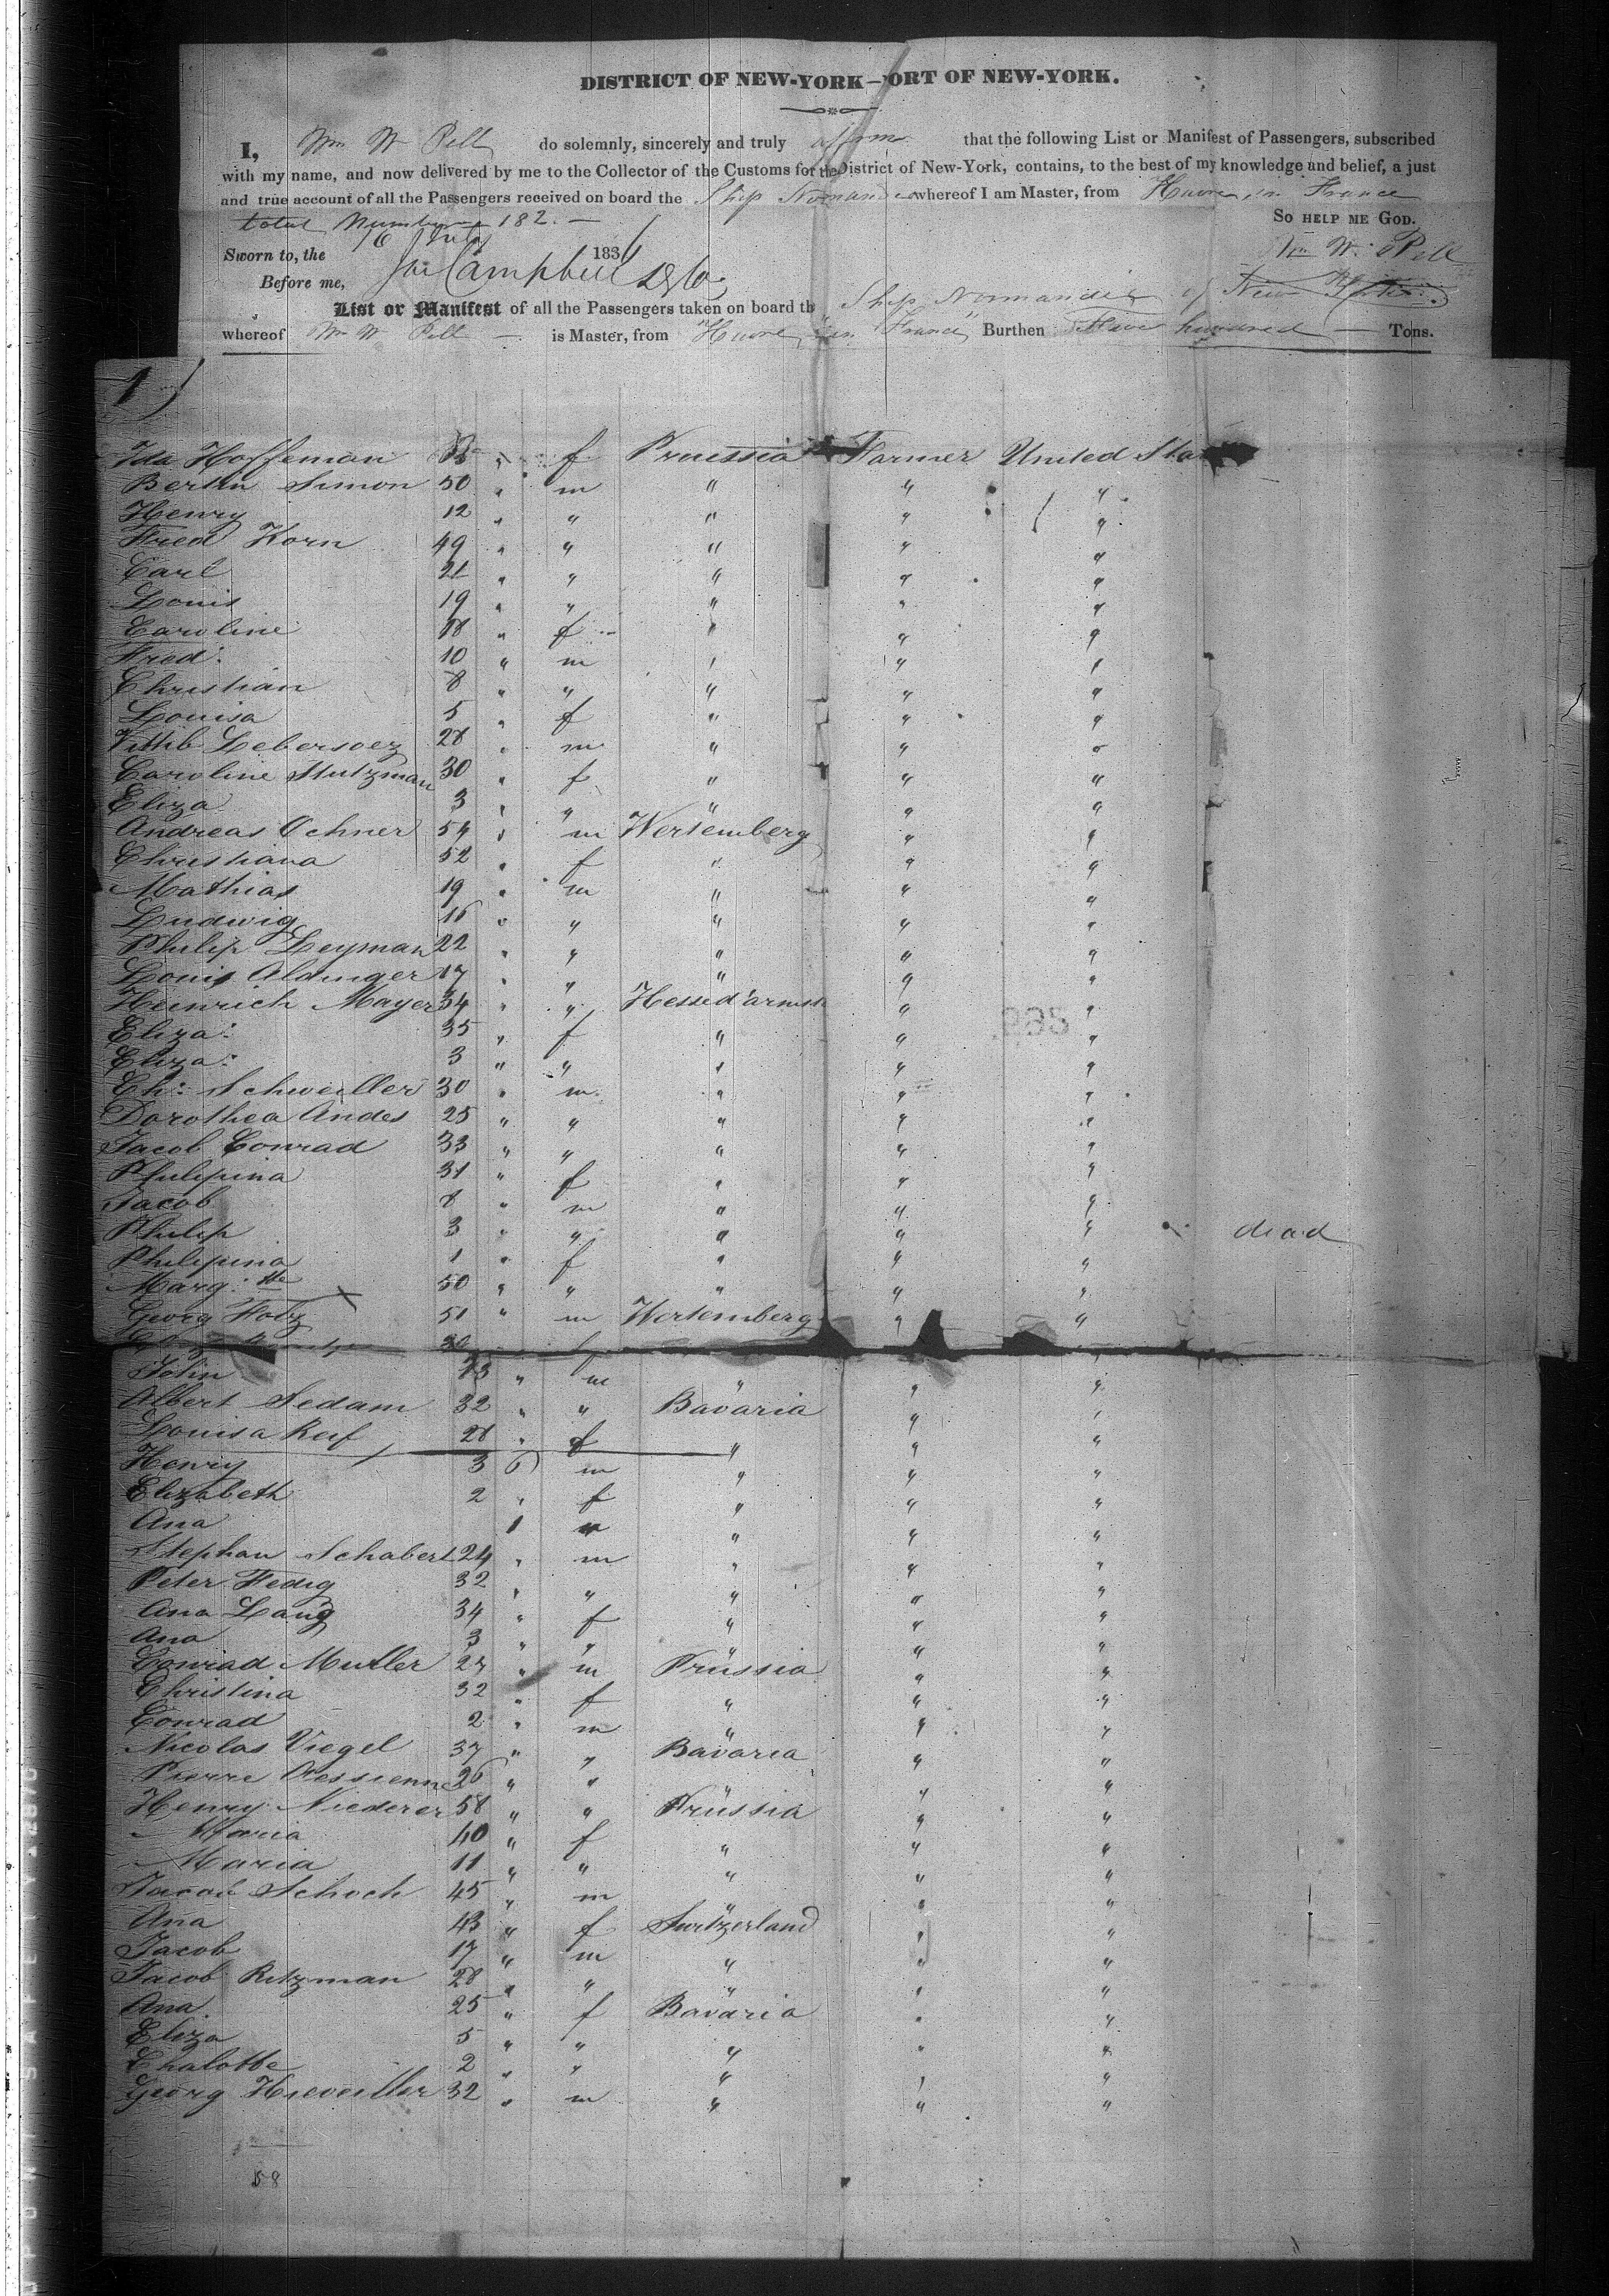 DISTRICT OF NEW-YORK—PORT OF NEW-YORK.
I, Wm W Pell do solemnly, sincerely and truly affirm that the following List or Manifest of Passengers, subscribed
with my name, and now delivered by me to the Collector of the Customs for the District of New-York, contains, to the best of my knowledge and belief, a just
and true account of all the Passengers received on board the Ship Normandie whereof I am Master, from Havre in France
total Number 182. —
So HELP ME GOD.
Sworn to, the 16 July 183
Wm W. Pell
Before me, Campbell
List or Manifest of all the Passengers taken on board th Ship Normandie of New York
whereof Wm W Pell is Master, from Havre in France Burthen five hundred — Tons.
1)
Ida Hoffeman " f Prussia Farmer United Sta
Bertin Simon 50 " m " " "
Henry 12 " " " " "
Fred Korn 49 " " " " "
Carl 21 " " " " "
Louis 19 " " " " "
Caroline 18 " f " " "
Fred: 10 " m " " "
Christian 8 " " " " "
Louisa 5 " f " " "
Lebersoez 28 " m " " "
Caroline Stutzman 30 " f " " "
Eliza 3 " " " " "
Andreas Ochner 54 " m Wertemberg " "
Christiana 52 " f " " "
Mathias 19 " m " " "
Ludwig 16 " " " " "
Philip Leyman 22 " " " " "
Louis Aldinger 17 " " " " "
Heinrich Mayer 34 " " Hesse d'armst " "
Eliza: 35 " f " " "
Eliza: 3 " " " " "
Ch: Schweiller 30 " m " " "
Dorothea Andes 25 " " " " "
Jacob Conrad 33 " " " " "
Philipina 31 " f " " "
Jacob 8 " m " " "
Philip 3 " " " " " dead
Philipina 1 " f " " "
Marg: tte 50 " " " " "
Georg Hotz 51 " m Wertemberg " "
John 23 " m " " "
Albert Sedam 32 " " Bavaria " "
Louisa Ruf 28 " f " " "
Henry 3 6 m " " "
Elizabeth 2 " f " " "
Ana 1 " " " "
Stephan Schabert 24 " m " " "
Peter Fedig 32 " " " " "
Ana Lang 34 " f " " "
Ana 3 " " " " "
Conrad Muller 27 " m Prussia " "
Christina 32 " f " " "
Conrad 2 " m " " "
Nicolas Viegel 37 " " Bavaria " "
Pierre 26 " " " " "
Henry Niederer 58 " " Prussia " "
Maria 40 " f " " "
Maria 11 " " " " "
Jacob Schoch 45 " m " " "
Ana 43 " f Switzerland " "
Jacob 17 " m " " "
Jacob Ritzman 28 " " " " "
Ana 25 " f Bavaria " "
Eliza 5 " " " " "
Chalotte 2 " " " " "
Georg 32 " m " " "
58